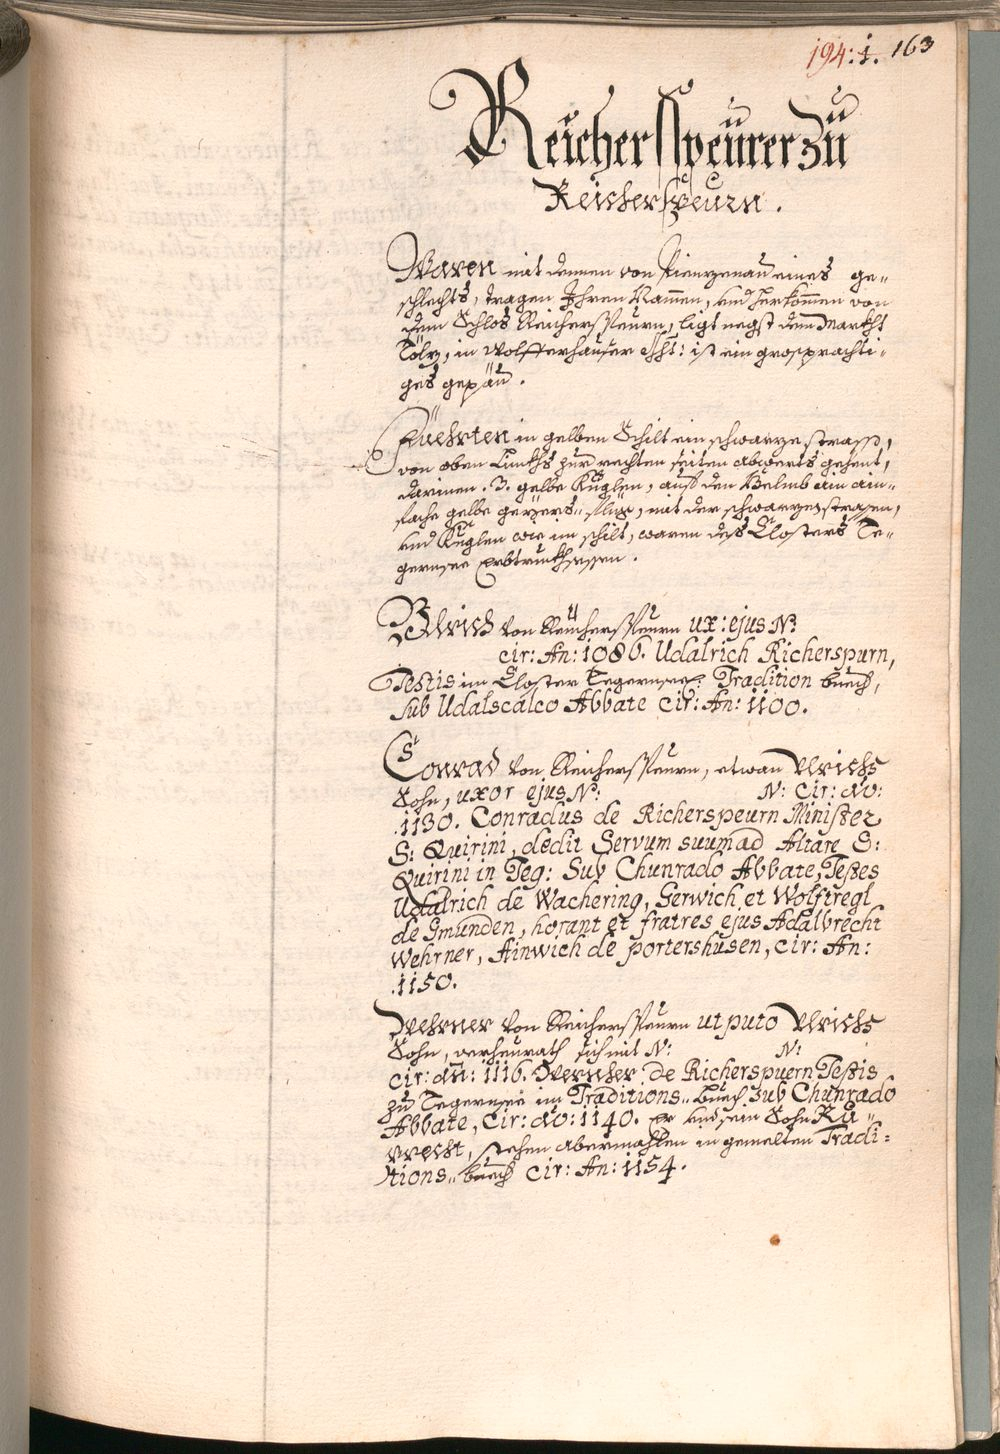 194: 1. 163
Reichersspeürer Zu
Reicherspeurn.
Waren mit dennen von Pienzenau eines ge-
schlechts, tragen Ihren Nammen, und herkommen von
dem Schlos Reicherspeurn, ligt negst dem Markht
Tölz, in Wolfferhauser Ght: ist ein grosprachti-
ges gepäu.
Füehrten in gelben Schilt ein schwarze strass,
von oben Linkhs zur rechten seiten abwerts gehent,
darinen .3. gelbe Kuglen, auf den Helmb ain ain-
fache gelbe geyers- flüg, mit der schwarzen strasen,
und Kuglen wie im schilt, waren dess Closters Te-
gernsee Erbtrukhsessen.
Ulrich von Reicherspeurn ux: ejus N:
cir: An: 1086. Udalrich Richerspurn,
Testis im Closter Tegernsee: Tradition buech,
sub Udalscalco Abbate cir: An: 1100.
Conrad von Reicherspeurn, etwan Ulrichs
Sohn, uxor ejus N: N: cir: ao:
.1130. Conradus de Richerspeurn Minister
S: Quirini, dedit Servum suum ad Altare S:
Quirini in Teg: Sub Chunrado Abbate, Testes
Udalrich de Wachering, Gerwich et Wolftregl
de Gmunden, horant et fratres ejus Adalbrecht
Wehrner, Ainwich de portershusen, cir: An:
.1150.
Wehrner von Reicherspeurn ut puto Ulrichs
Sohn, verheurath sich mit N: N:
cir: an: 1116. Wernher de Richerspuern Testis
zu Tegernsee im Traditions- buech sub Chunrado
Abbate, cir: ao: 1140. er und sein Sohn Ru-
precht, stehen abermahlen in gemelten Tradi-
tions- buech cir: An: 1154.